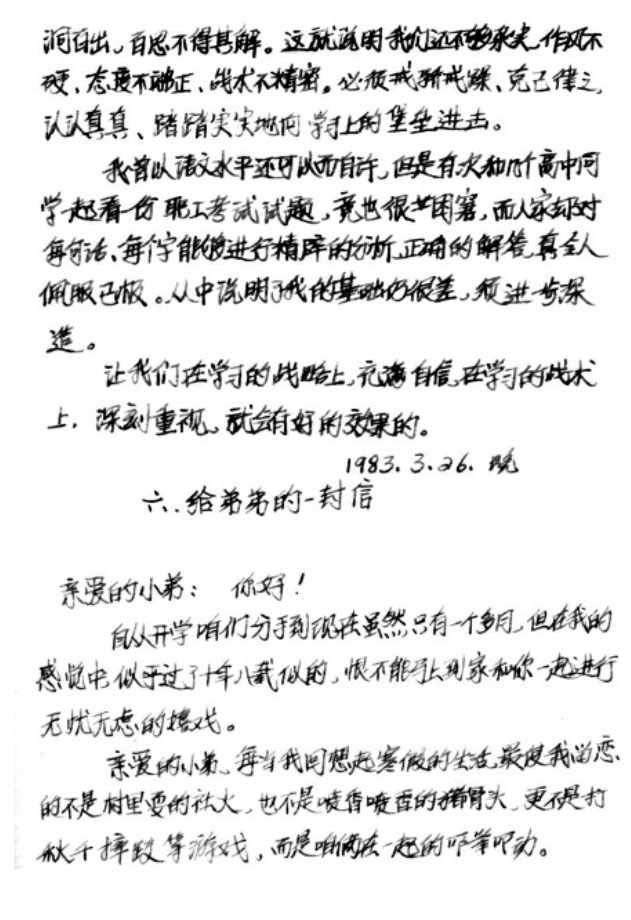 洞百出，百思不得其解。这就说明我们还不够求实，作风不
硬、态度不端正、战术不精密。必须戒骄戒躁、克己律之，
认认真真、踏踏实实地向学习上的堡垒进击。
我曾以语文水平还可以而自许，但是有次和几个高中同
学一起看一份职工考试试题，竟也很共困窘，而人家却对
每句话、每个字能够进行精库的分析，正确的解答，真令人
佩服已极。从中说明了我的基础仍很差，须进一步深
造。
让我们在学习的战略上，充满自信，在学习的战术
上，深刻重视，就会有好的效果的。
1983.3.26.晚
六.给弟弟的一封信
亲爱的小弟：你好！
自从开学咱们分手到现在虽然只有一个多月，但在我的
感觉中，似乎过了十年八载似的，恨不能马上到家和你一起进行
无忧无虑的嬉戏。
亲爱的小弟，每当我回想起寒假的生活，最使我留恋
的不是村里耍的社火，也不是喷香喷香的猪骨头，更不是打
秋千摔跤等游戏，而是咱俩在一起的